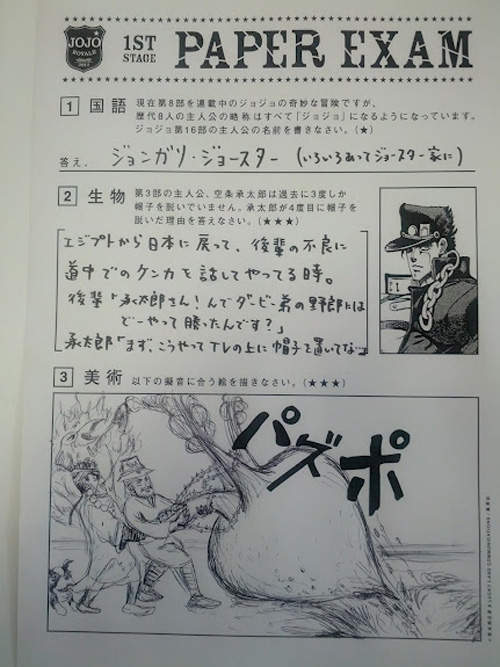 JOJO
ROYALE
1ST
STAGE
PAPER EXAM
1 国語 現在第8部を連載中のジョジョの奇妙な冒険ですが、
歴代8人の主人公の略称はすべて「ジョジョ」になるようになっています。
ジョジョ第16部の主人公の名前を書きなさい。(★)
答え. ジョンガリ・ジョースター (いろいろあってジョースター家に)
2 生物 第3部の主人公、空条承太郎は過去に3度しか
帽子を脱いでいません。承太郎が4度目に帽子を
脱いだ理由を答えなさい。(★★★)
エジプトから日本に戻って、後輩の不良に
道中でのケンカを話してやってる時。
後輩「承太郎さん!んでダービー弟の野郎には
どーやって勝ったんです?」
承太郎「まず、こうやってTVの上に帽子を置いてな…」
3 美術 以下の擬音に合う絵を描きなさい。(★★★)
パズポ